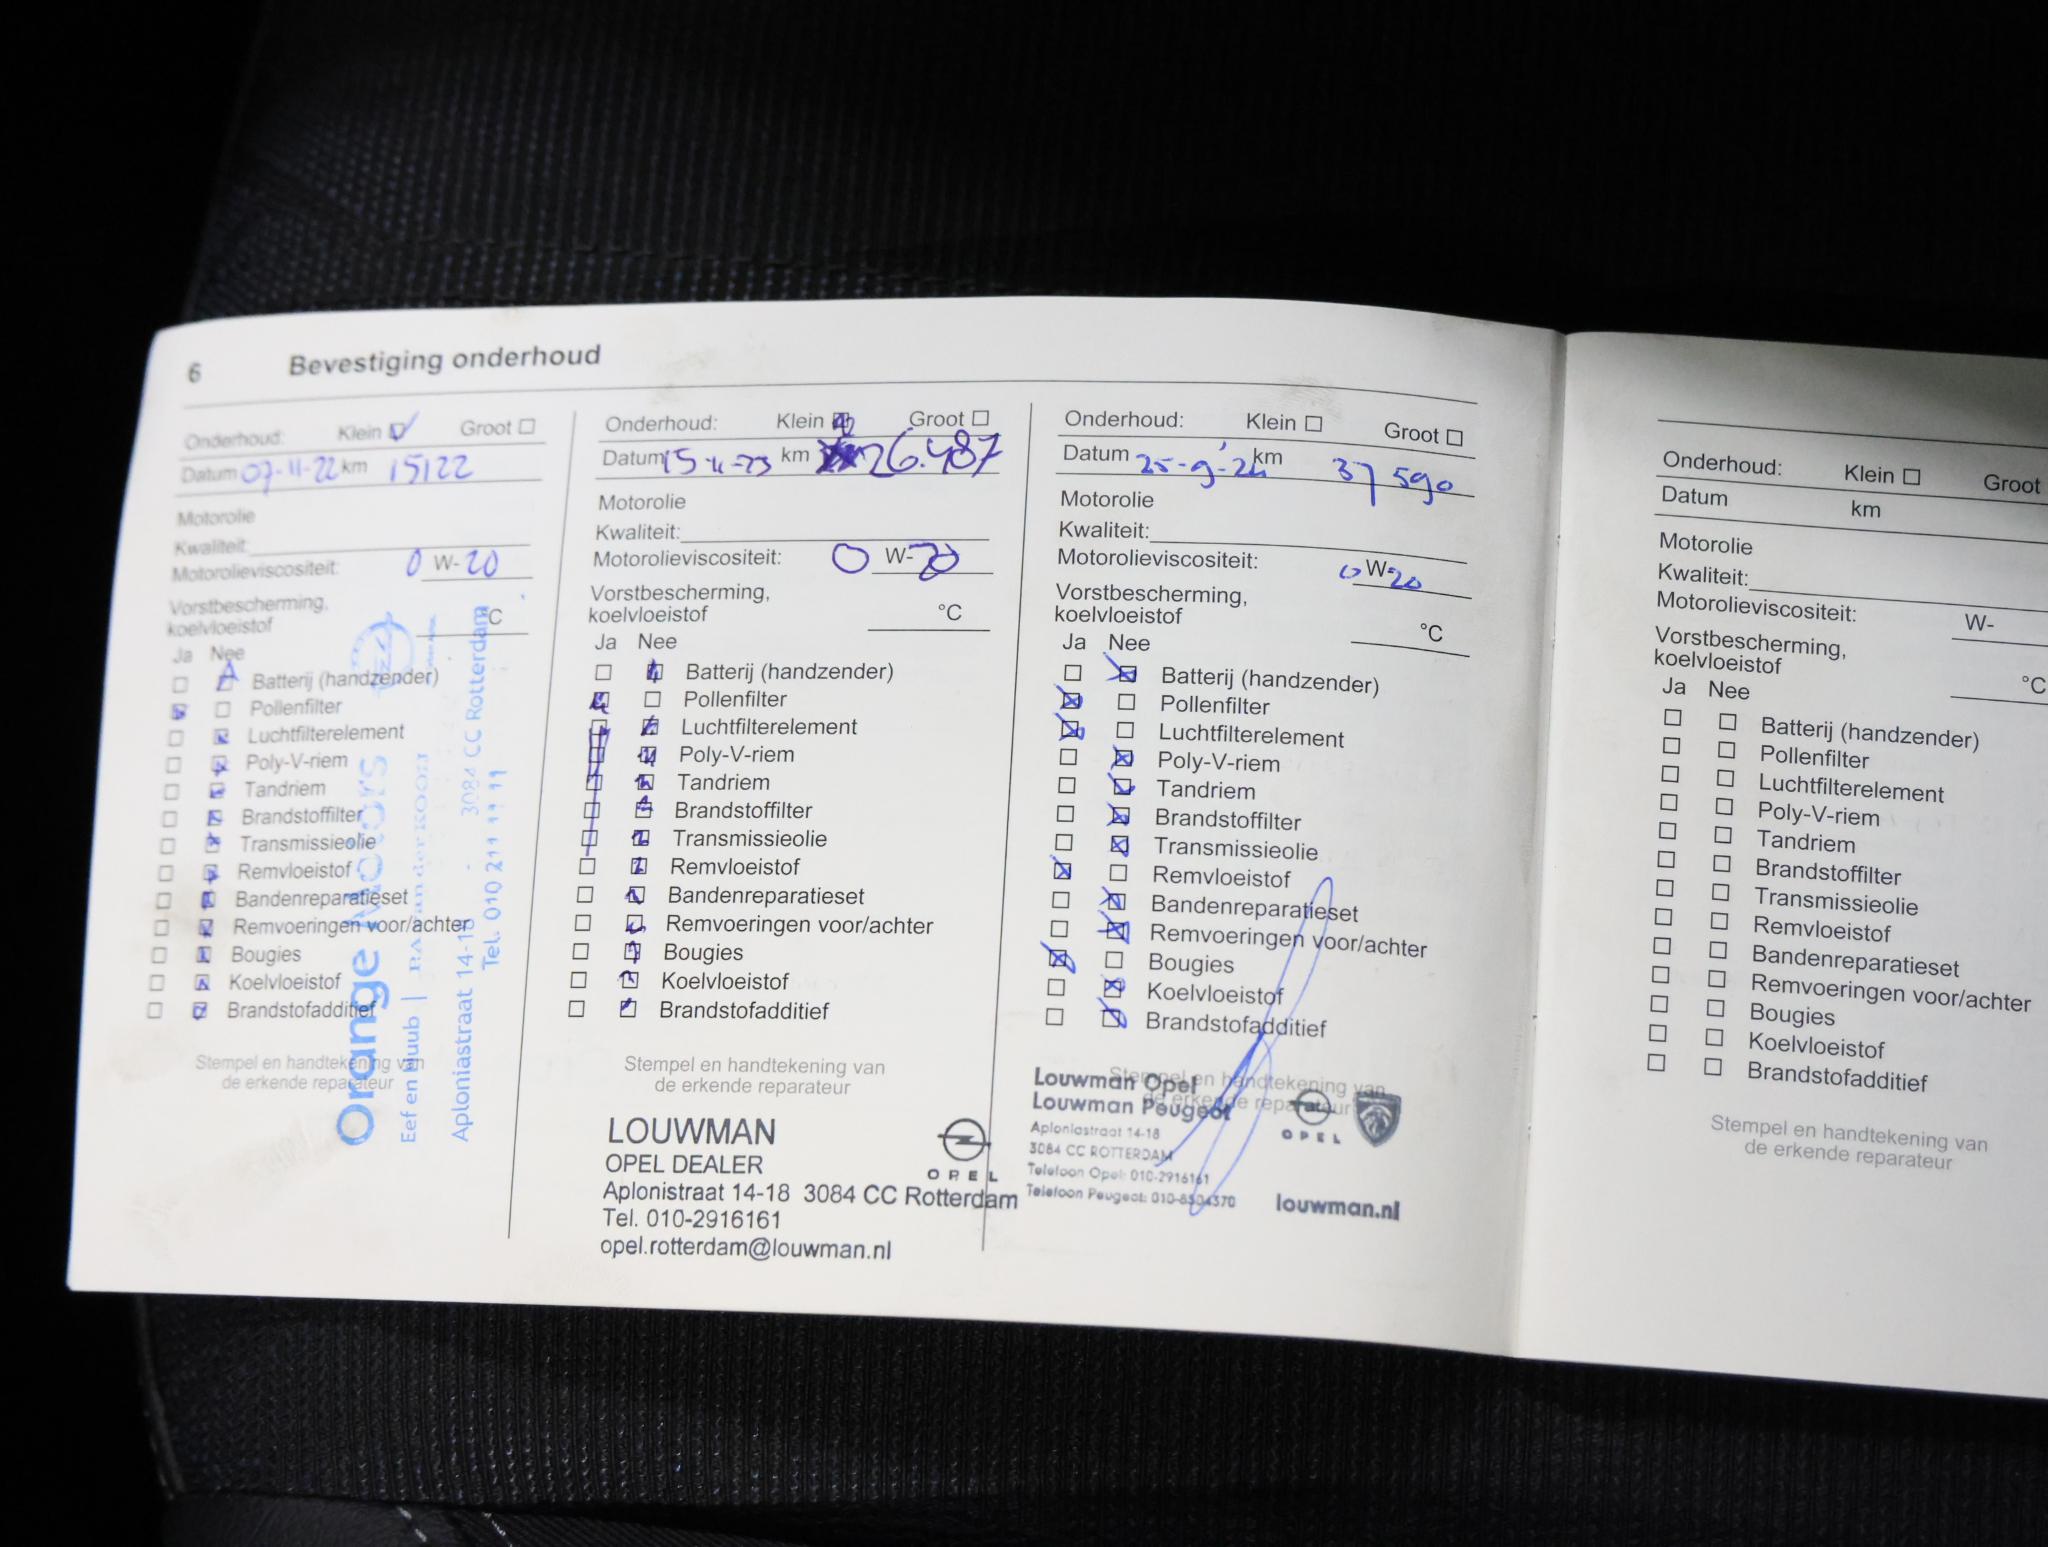 6 Bevestiging onderhoud
Onderhoud: Klein Groot
Datum 07-11-22 km 15122
Motorolie
Kwaliteit:
Motorolieviscositeit: 0 W-20
Vorstbescherming,
koelvloeistof °C
Ja Nee
Batterij (handzender)
Pollenfilter
Luchtfilterelement
Poly-V-riem
Tandriem
Brandstoffilter
Transmissieolie
Remvloeistof
Bandenreparatieset
Remvoeringen voor/achter
Bougies
Koelvloeistof
Brandstofadditief
Stempel en handtekening van
de erkende reparateur
Orange Motors
Eef en Huub
Aploniastraat 14-18 - 3084 CC Rotterdam
Tel. 010 211 11 11
Onderhoud: Klein Groot
Datum 15-11-23 km 26.487
Motorolie
Kwaliteit:
Motorolieviscositeit: 0 W-20
Vorstbescherming,
koelvloeistof °C
Ja Nee
Batterij (handzender)
Pollenfilter
Luchtfilterelement
Poly-V-riem
Tandriem
Brandstoffilter
Transmissieolie
Remvloeistof
Bandenreparatieset
Remvoeringen voor/achter
Bougies
Koelvloeistof
Brandstofadditief
Stempel en handtekening van
de erkende reparateur
LOUWMAN
OPEL DEALER
OPEL
Aplonistraat 14-18 3084 CC Rotterdam
Tel. 010-2916161
opel.rotterdam@louwman.nl
Onderhoud: Klein Groot
Datum 25-9-'24 km 37590
Motorolie
Kwaliteit:
Motorolieviscositeit: 0 W-20
Vorstbescherming,
koelvloeistof °C
Ja Nee
Batterij (handzender)
Pollenfilter
Luchtfilterelement
Poly-V-riem
Tandriem
Brandstoffilter
Transmissieolie
Remvloeistof
Bandenreparatieset
Remvoeringen voor/achter
Bougies
Koelvloeistof
Brandstofadditief
Stempel en handtekening van
de erkende reparateur
Louwman Opel
Louwman Peugeot
OPEL
Aploniastraat 14-18
3084 CC ROTTERDAM
Telefoon Opel: 010-2916161
Telefoon Peugeot: 010-8504370
louwman.nl
Onderhoud: Klein Groot
Datum km
Motorolie
Kwaliteit:
Motorolieviscositeit: W-
Vorstbescherming,
koelvloeistof °C
Ja Nee
Batterij (handzender)
Pollenfilter
Luchtfilterelement
Poly-V-riem
Tandriem
Brandstoffilter
Transmissieolie
Remvloeistof
Bandenreparatieset
Remvoeringen voor/achter
Bougies
Koelvloeistof
Brandstofadditief
Stempel en handtekening van
de erkende reparateur